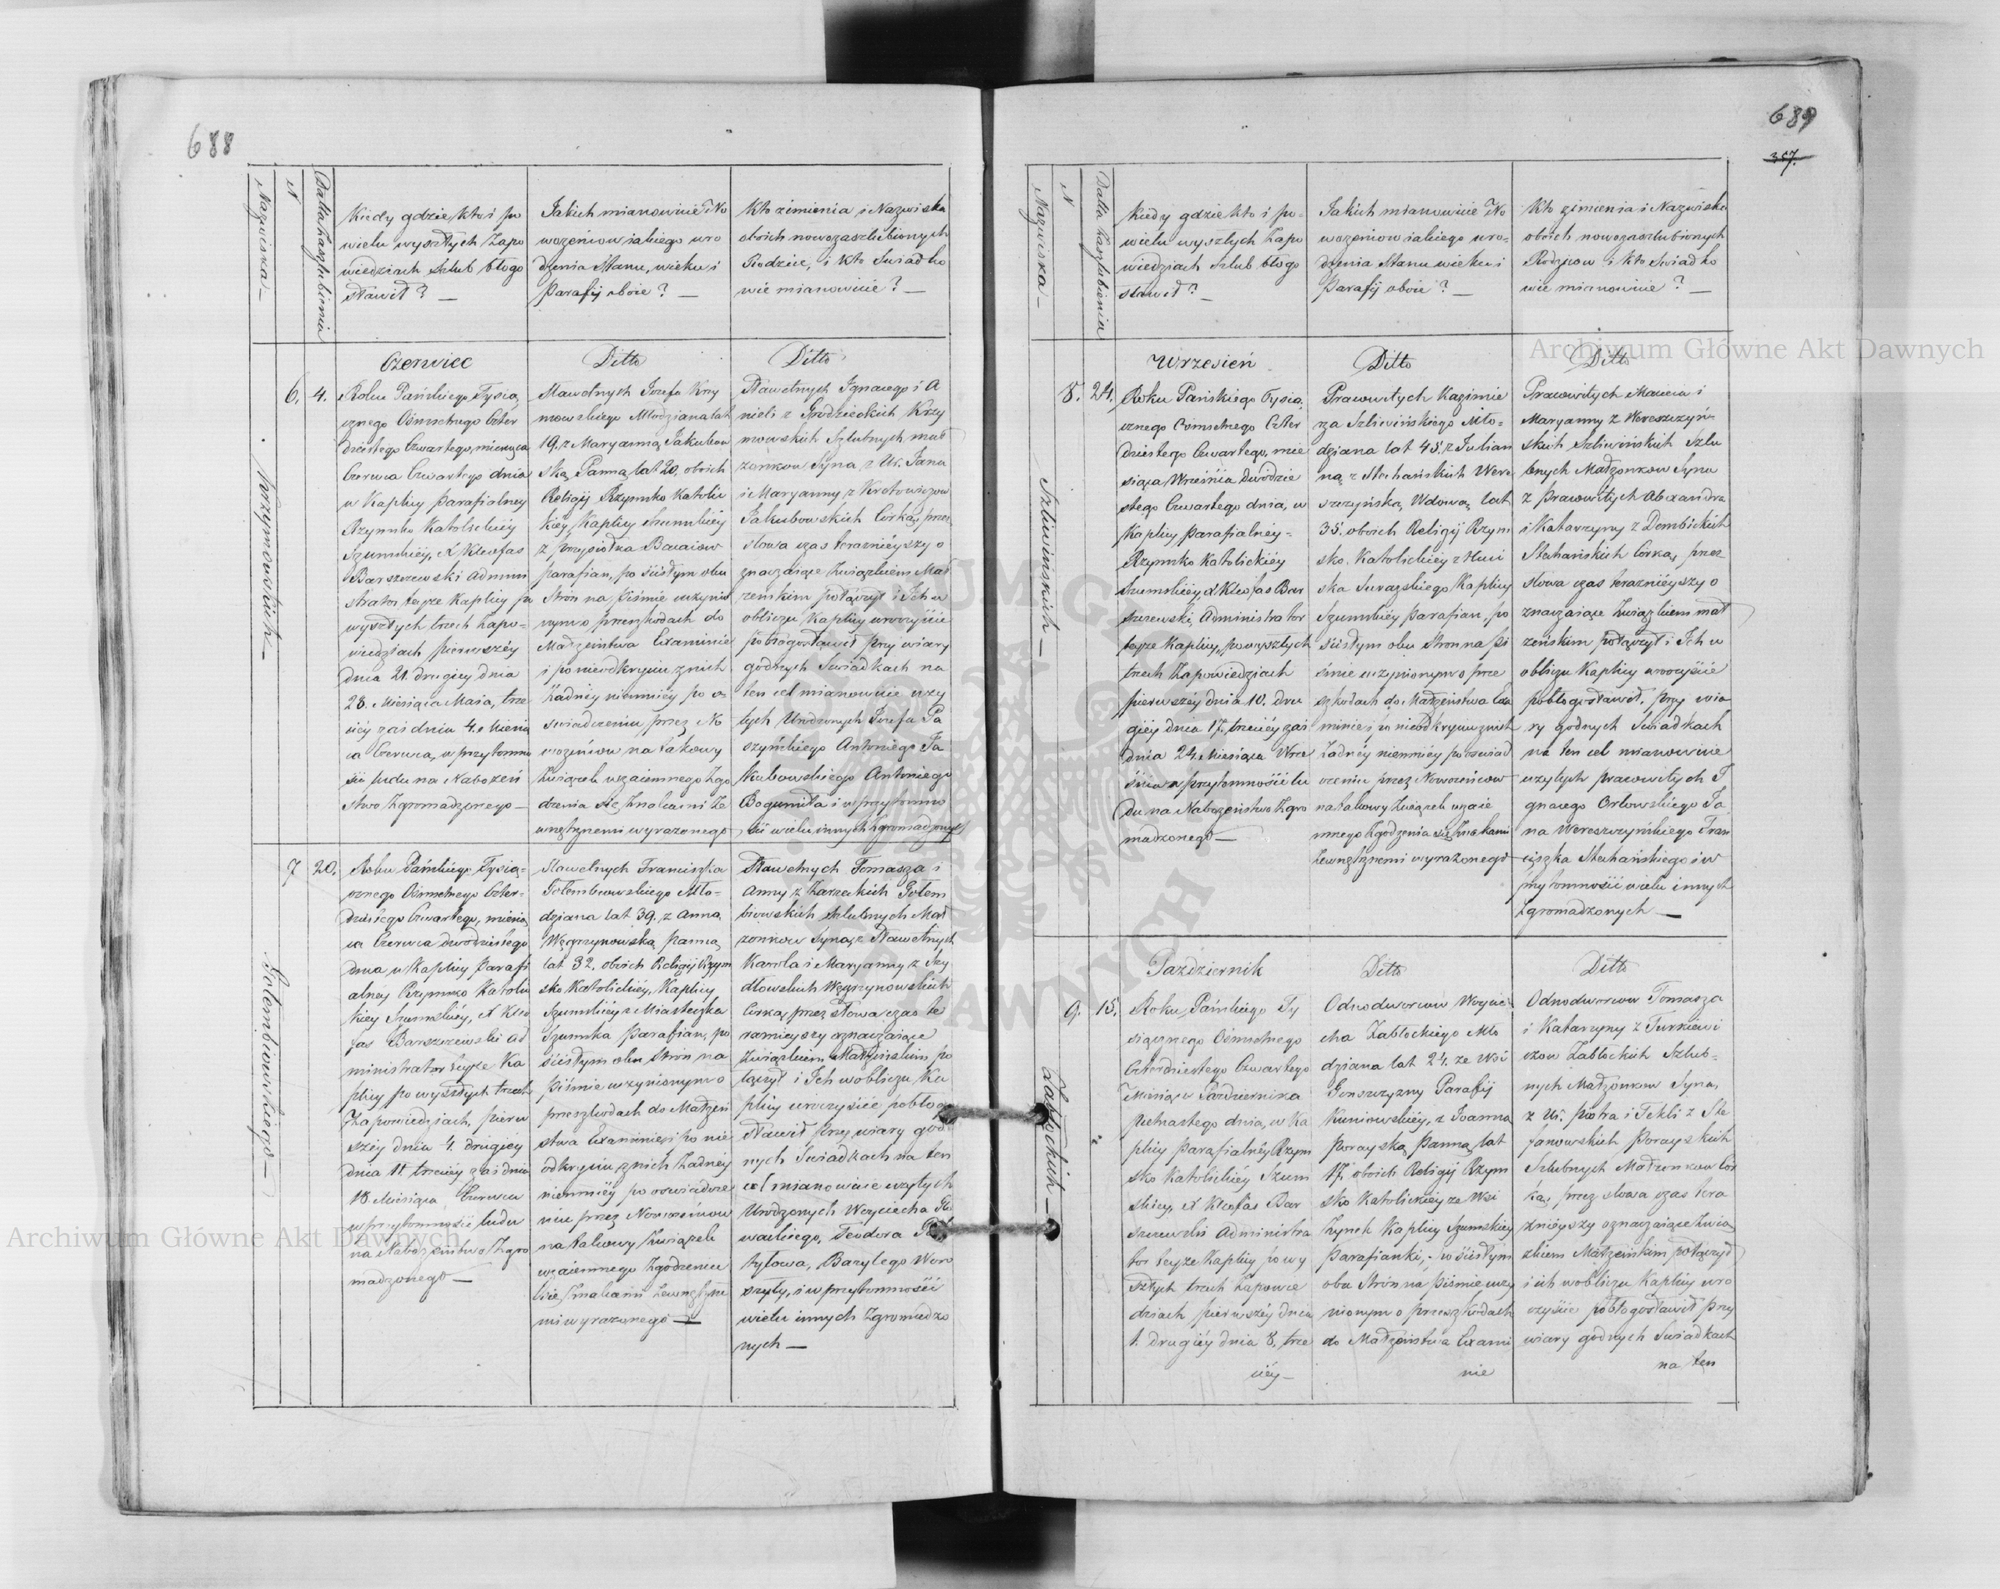 688
Nazwiska —
N
Datta Zaszlubienia
Kiedy gdzie, kto i po
wielu wyszłych Zapo
wiedziach szlub błogo
sławił? —
Jakich mianowicie No
wożeńcow iakiego uro
dzenia Stanu, wieku i
Parafij oboie? —
Kto z imienia i Nazwiska
obóich nowozaszlubionych
Rodzice, i kto Swiadko
wie mianowicie? —
Krzymowskich —
6.
4.
Czerwiec
Roku Pańskiego Tysią
cznego Ośmsetnego Czter
dziestego Czwartego, miesiąca
Czerwca Czwartego dnia
w Kaplicy Parafialney
Rzymsko Katolickiéy
Szumskiey, X Kleofas
Barszczewski Admini
strator teyże Kaplicy po
wyszłych trzech Zapo-
wiedziach pierwszéy
dnia 21. drugiey dnia
28. Miesiąca Maia, trze
ciéy zaś dnia 4. Miesią
ca Czerwca, w przytomno
ści ludu na Nabożeń
stwo Zgromadzonego —
Ditto
Sławetnych Jozefa Krzy
mowskiego Młodziana lat
19. z Maryanną Jakubow
ską Panną lat 20. oboich
Religij Rzymsko Katolic
kiéy Kaplicy Szumskiéy
z przysiołka
parafian, po ścisłym obu
Strón na Piśmie uczynio
nym o przeszkodach do
Małżeństwa Examinie
i po nieodkryciu z nich
Żadnéy niemniéy po o-
swiadczeniu przez No
wożeńcow na takowy
Związek wzaiemnego Zgo
dzenia się Znakami Ze
wnętrznemi wyrażonego
Ditto
Sławetnych Ignacego i A
nieli z Grodzieckich Krzy
mowskich Szlubnych mał
żonkow Syna z Ur. Jana
i Maryanny z Krotowiczow
Jakubowskich Córką, przez
słowa czas teraznieyszy o
znaczaiące Związkiem Mał
żeńskim połączył i Ich w
obliczu Kaplicy uroczyście
pobłogosławił przy wiary
godnych Swiadkach na
ten cel mianowicie uży
tych Urodzonych Jozefa Pa
szyńskiego Antoniego Ja
kubowskiego Antoniego
Bogumiła i w przytomno
ści wielu innych Zgromadzonych
Gołembiowskiego —
7
20.
Roku Pańskiego Tysią-
cznego Ośmsetnego Czter-
dziestego Czwartego, miesią
ca Czerwca dwodziestego
dnia w Kaplicy Parafi
alney Rzymsko Katolic
kiey Szumskiey, X Kleo
fas Barszczewski Ad
ministrator teyże Ka
plicy po wyszłych trzech
Zapowiedziach, pierw
széy dnia 4. drugiey
dnia 11 trzeciey zaś dnia
18 Miesiąca Czerwca
w przytomności ludu
na Nabożeństwo Zgro
madzonego —
Sławetnych Franciszka
Gołembiowskiego Mło-
dziana lat 39. z Anną
Węgrzynowską panną
lat 32. oboich Religij Rzym
sko Katolickiéy, Kaplicy
Szumskiéy z Miasteczka
Szumska Parafian, po
ścisłym obu Strón na
Piśmie uczynionym o
przeszkodach do Małżeń
stwa Examinie i po nie
odkryciu z nich Żadnéy
niemniéy po oswiadcze
niu przez Nowożeńcow
na takowy Związek
wzaiemnego Zgodzenia
się Znakami Zewnętrzne
mi wyrażonego —
Sławetnych Tomasza i
Anny z Zarzeckich Gołem
biowskich szlubnych Mał
żonkow Syna, z Sławetnych
Karola i Maryanny z Szy
dłowskich Węgrzynowskich
Corką, przez słowa czas te
raznieyszy oznaczaiące
Związkiem Małżeńskim po
łączył i Ich w obliczu Ka
plicy uroczyście pobłogo
sławił przy wiary god
nych Swiadkach na ten
cel mianowicie użytych
Urodzonych Woyciecha
Teodora
Bazylego Woro
szyły, i w przytomności
wielu innych Zgromadzo
nych —
689
357.
Nazwiska —
N
Datta Zaszlubienia
Kiedy gdzie kto i po-
wielu wyszłych Zapo
wiedziach szlub błogo
sławił? —
Jakich mianowicie No
wożeńcow iakiego uro-
dzenia Stanu wieku i
Parafij oboie? —
Kto z imienia i Nazwiska
oboich nowozaszlubionych
Rodzicow i kto Swiadko
wie mianowicie? —
Szliwińskich —
8.
24.
Wrzesień
Roku Pańskiego Tysią
cznego Ośmsetnego Czter
dziestego Czwartego, mie
siąca Wrześnìa Dwodzie
stego Czwartego dnia, w
Kaplicy Parafialnéy-
Rzymsko Katolickiéy
Szumskiéy, X Kleofas Bar
szczewski, Administrator
teyże Kaplicy, po wyszłych
trzech Zapowiedziach
pierwszéy dnia 10. dru
giéy dnia 17. trzeciéy zaś
dnia 24. Miesiąca Wrze
śnia w przytomności lu
du na Nabożeństwo Zgro
madzonego —
Ditto
Prawowitych Kazimie
rza Szliwińskiego Mło-
dziana lat 45. z Julian
ną z Stechańskich Were
szczyńską Wdową, lat
35. oboich Religij Rzym
sko. Katolickiéy z Huci
ska Surazskiego Kaplicy
Szumskiéy Parafian, po
ścisłym obu Stron na Pi
śmie uczynionym o prze
szkodach do Małżeństwa Exa
minie i po nieodkryciu z nich
Żadnéy niemniéy po oswiad
czeniu przez Nowożeńcow
na takowy Związek wzaie
mnego Zgodzenia się Znakami
Zewnętrznemi wyrażonego —
Ditto
Prawowitych Macieia i
Maryanny z Wereszczyń-
skich Szliwińskich Szlu
bnych Małżonkow Syna
z Prawowitych Alexandra
i Katarzyny z Dembickich
Stechańskich Córką, przez
słowa czas teraznieyszy o
znaczaiące Związkiem mał
żeńskim połączył i Ich w
obliczu Kaplicy uroczyście
pobłogosławił, przy wia
ry godnych Swiadkach
na ten cel mianowicie
użytych prawowitych I
gnacego Orłowskiego Ja
na Wereszczyńskiego Fran
ciszka Stechańskiego i w
przytomności wielu innych
Zgromadzonych —
Zabłockich —
9.
15.
Pazdziernik
Roku Pańskiego Ty
siącznego Ośmsetnego
Czterdziestego Czwartego
Miesiąca Pazdziernika
piętnastego dnia, w Ka
plicy Parafialnéy Rzym
sko Katolickiéy Szum
skiéy, X Kleofas Bar
szczewski Administra
tor teyże Kaplicy po wy
szłych trzech Zapowie
dziach pierwszéy dnia
1. drugiéy dnia 8. trze
ciéy —
Ditto
Odnodworcow Woycie
cha Zabłockiego Mło
dziana lat 24. ze Wsi
Parafij
Kuniowskiéy, z Joanną
Porayską Panną lat
17. oboich Religij Rzym
sko Katolickiey ze Wsi
Zynek Kaplicy Szumskiey
Parafianki, - po ścisłym
obu Strón na Piśmie uczy
nionym o przeszkodach
do Małżeństwa Exami
nie
Ditto
Odnodworcow Tomasza
i Katarzyny z Turkiewi
czow Zabłockich Szlub-
nych Małżonkow Syna,
z Ur. Piotra i Tekli z Ste
fanowskich Porayskich
Szlubnych Małżonkow Cór
ką, przez słowa czas tera
znieyszy oznaczaiące Zwią
zkiem Małżeńskim połączył
i ich w obliczu Kaplicy uro
czyście pobłogosławił przy
wiary godnych Swiadkach
na ten
Archiwum Główne Akt Dawnych
Archiwum Główne Akt Dawnych